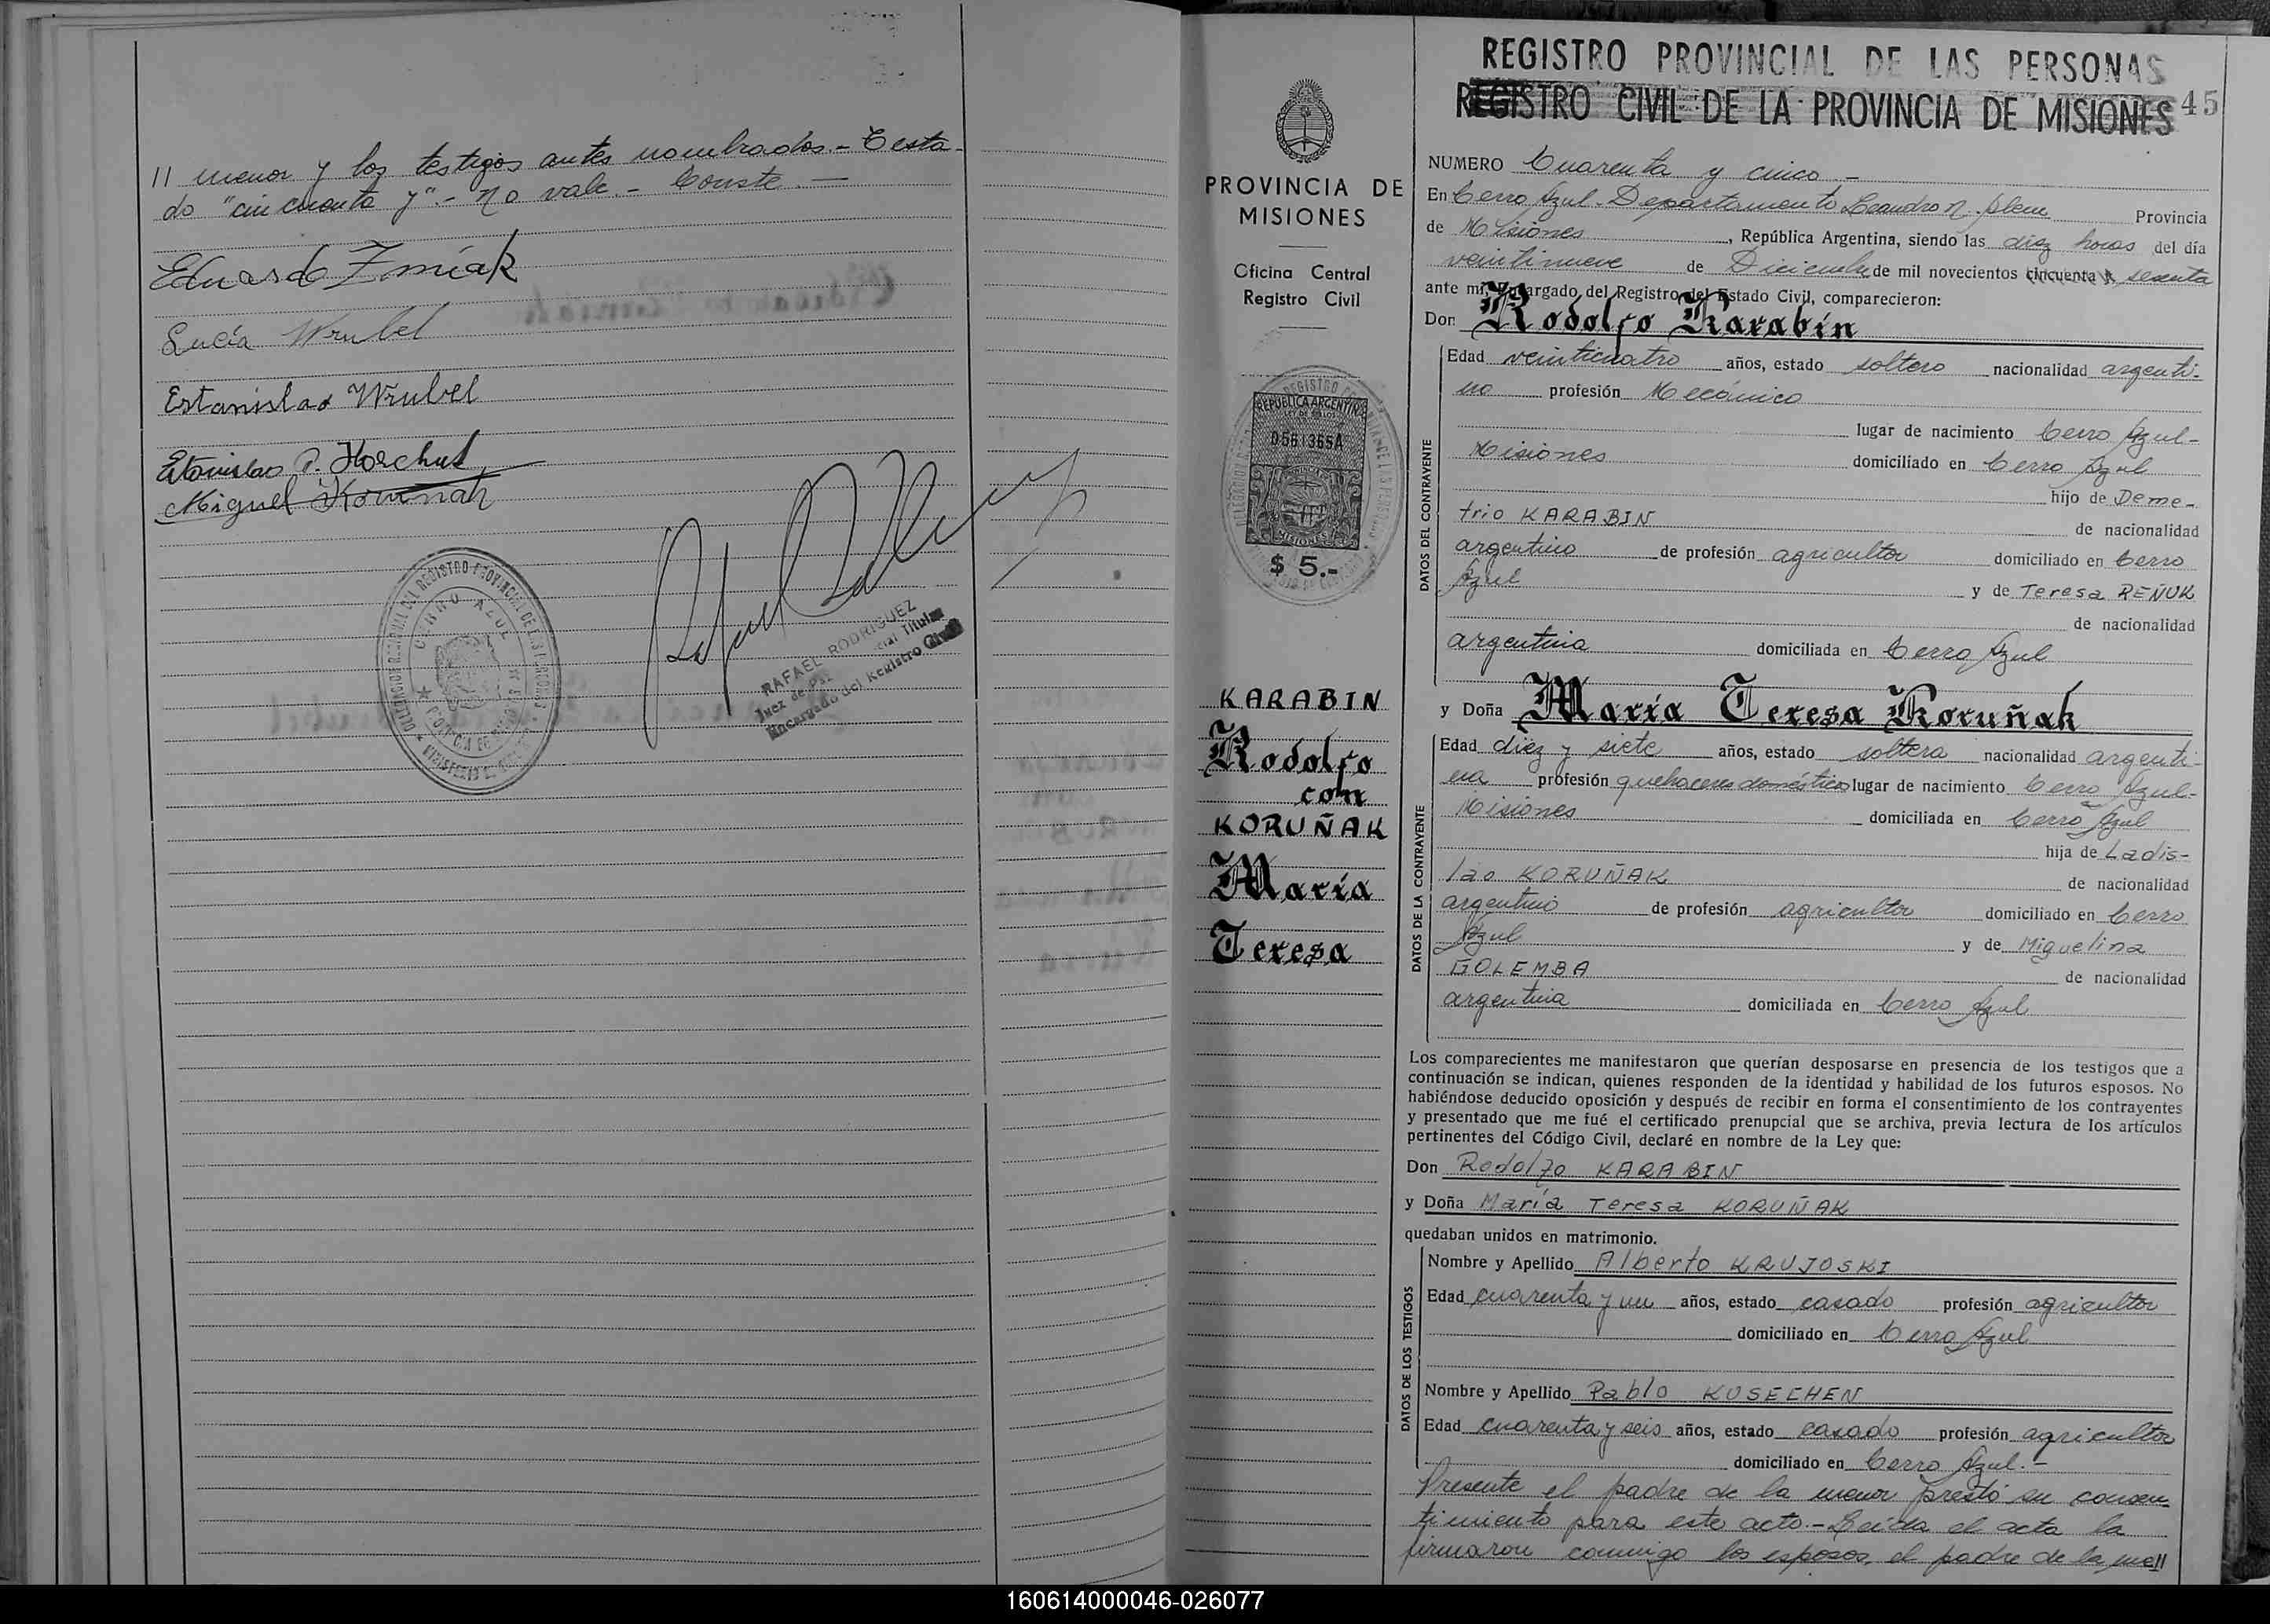 // menor y los testigos antes nombrados.- Testa-
do "cincuenta y".- no vale.- Conste.-
Eduardo Zmiak
Lucía Wrubel
Estanislao Wrubel
Estanislao P. Horchut
Miguel Korunah
CERRO AZUL
RAFAEL RODRIGUEZ
Juez de Paz Titular
Encargado del Registro Civil
PROVINCIA DE
MISIONES
Oficina Central
Registro Civil
REPUBLICA ARGENTINA
LEY DE SELLOS
0561365A
MISIONES
$ 5.-
KARABIN
Rodolfo
con
KORUÑAK
María
Teresa
REGISTRO PROVINCIAL DE LAS PERSONAS
REGISTRO CIVIL DE LA PROVINCIA DE MISIONES 45
NUMERO Cuarenta y cinco.-
En Cerro Azul-Departamento Leandro N. Alem Provincia
de Misiones, República Argentina, siendo las diez horas del día
veintinueve de Diciembre de mil novecientos cincuenta y sesenta
ante mí, Encargado del Registro del Estado Civil, comparecieron:
Don Rodolfo Karabin
DATOS DEL CONTRAYENTE
Edad veinticuatro años, estado soltero nacionalidad argenti-
no profesión Mecánico
lugar de nacimiento Cerro Azul-
Misiones domiciliado en Cerro Azul
hijo de Deme-
trio KARABIN de nacionalidad
argentino de profesión agricultor domiciliado en Cerro
Azul y de Teresa REÑUK
de nacionalidad
argentina domiciliada en Cerro Azul
y Doña María Teresa Koruñak
DATOS DE LA CONTRAYENTE
Edad diez y siete años, estado soltera nacionalidad argenti-
na profesión quehaceres domésticos lugar de nacimiento Cerro Azul-
Misiones domiciliada en Cerro Azul
hija de Ladis-
lao KORUÑAK de nacionalidad
argentino de profesión agricultor domiciliado en Cerro
Azul y de Miguelina
GOLEMBA de nacionalidad
argentina domiciliada en Cerro Azul
Los comparecientes me manifestaron que querían desposarse en presencia de los testigos que a
continuación se indican, quienes responden de la identidad y habilidad de los futuros esposos. No
habiéndose deducido oposición y después de recibir en forma el consentimiento de los contrayentes
y presentado que me fué el certificado prenupcial que se archiva, previa lectura de los artículos
pertinentes del Código Civil, declaré en nombre de la Ley que:
Don Rodolfo KARABIN
y Doña María Teresa KORUÑAK
quedaban unidos en matrimonio.
DATOS DE LOS TESTIGOS
Nombre y Apellido Alberto KRUJOSKI
Edad cuarenta y un años, estado casado profesión agricultor
domiciliado en Cerro Azul
Nombre y Apellido Pablo KUSECHEN
Edad cuarenta y seis años, estado casado profesión agricultor
domiciliado en Cerro Azul.-
Presente el padre de la menor prestó su consen-
timiento para este acto.- Leída el acta la
firmaron conmigo los esposos, el padre de la me//
160614000046-026077